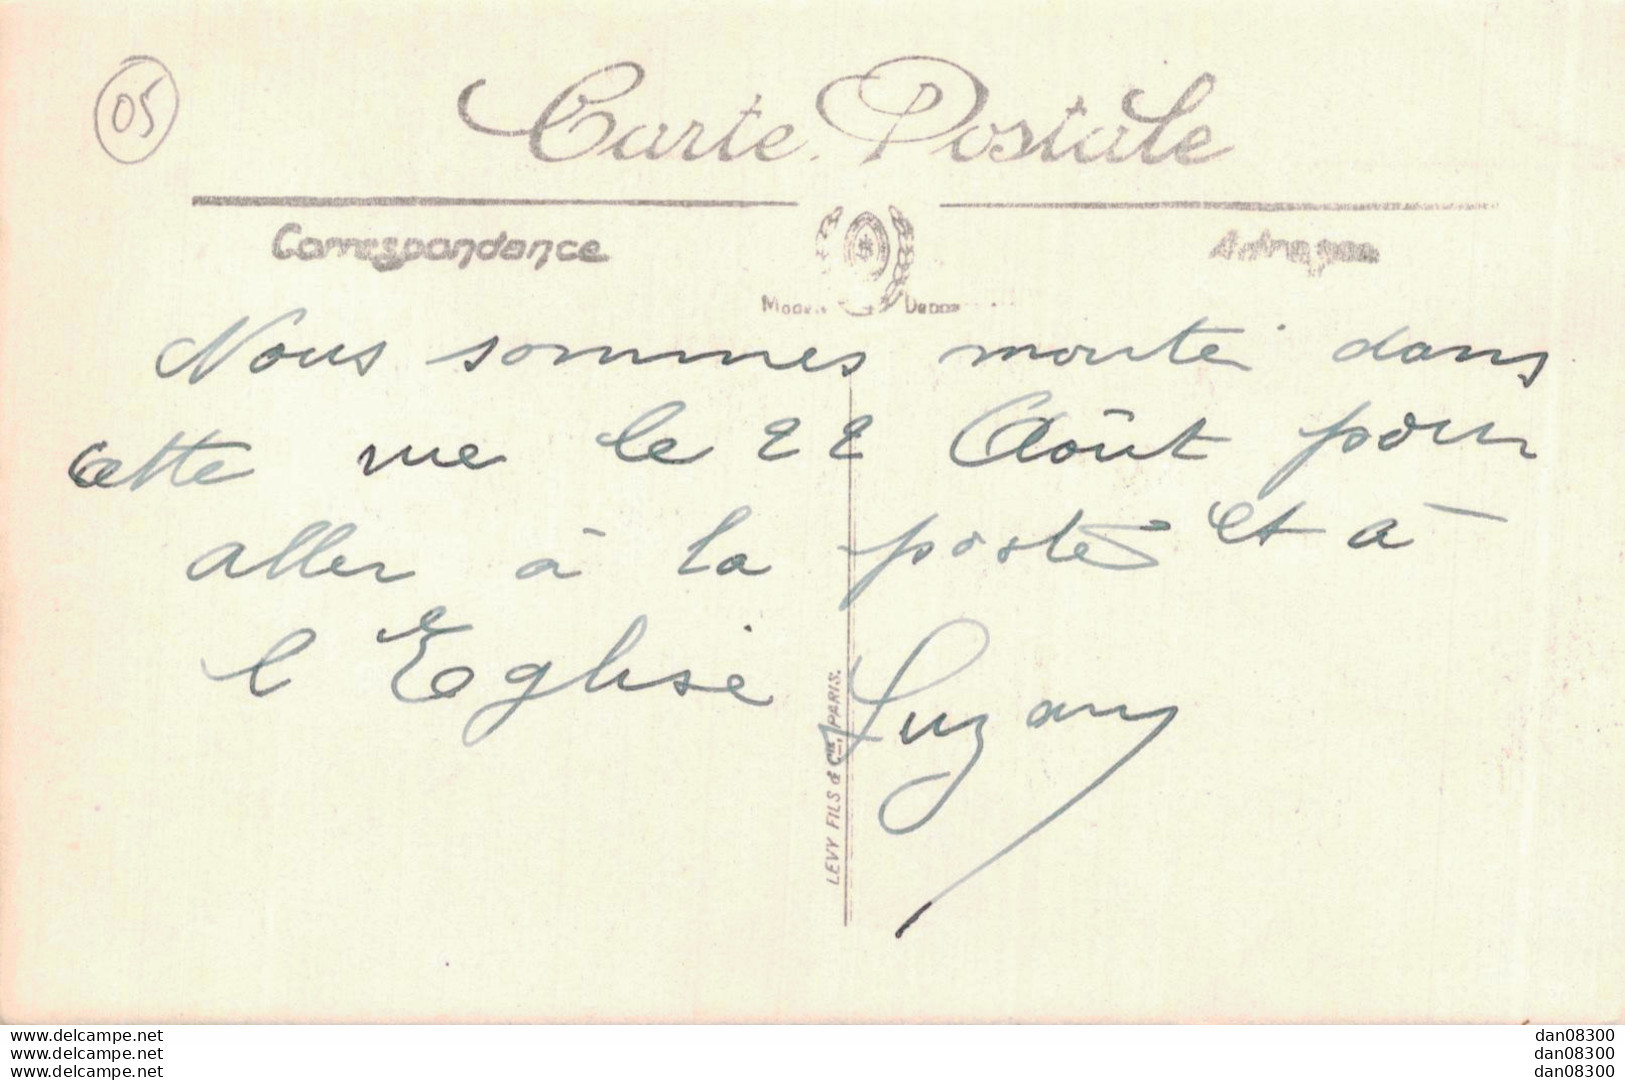 05
Carte Postale
Correspondance
Adresse
Nous sommes monté dans
cette rue le 22 Août pour
aller à la poste et à
l'Eglise Suzany
LEVY FILS & Cie, PARIS.
www.delcampe.net
www.delcampe.net
www.delcampe.net
dan08300
dan08300
dan08300